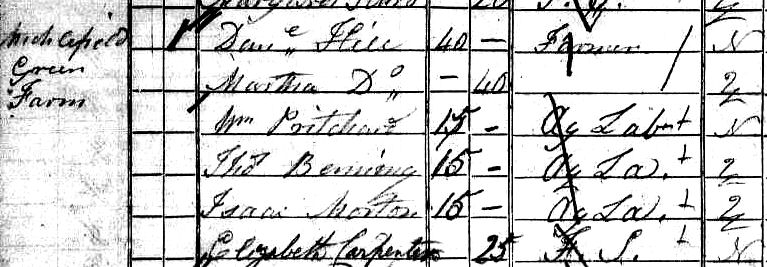 Micklefield Green Farm
Danl Hill 40 – Farmer N
Martha Do – 40 Y
Wm Pritchard 15 – Ag Lab N
Thos Benning 15 – Ag La. Y
Isaac Morton 15 – Ag La. Y
Elizabeth Carpenter 25 F. S. N